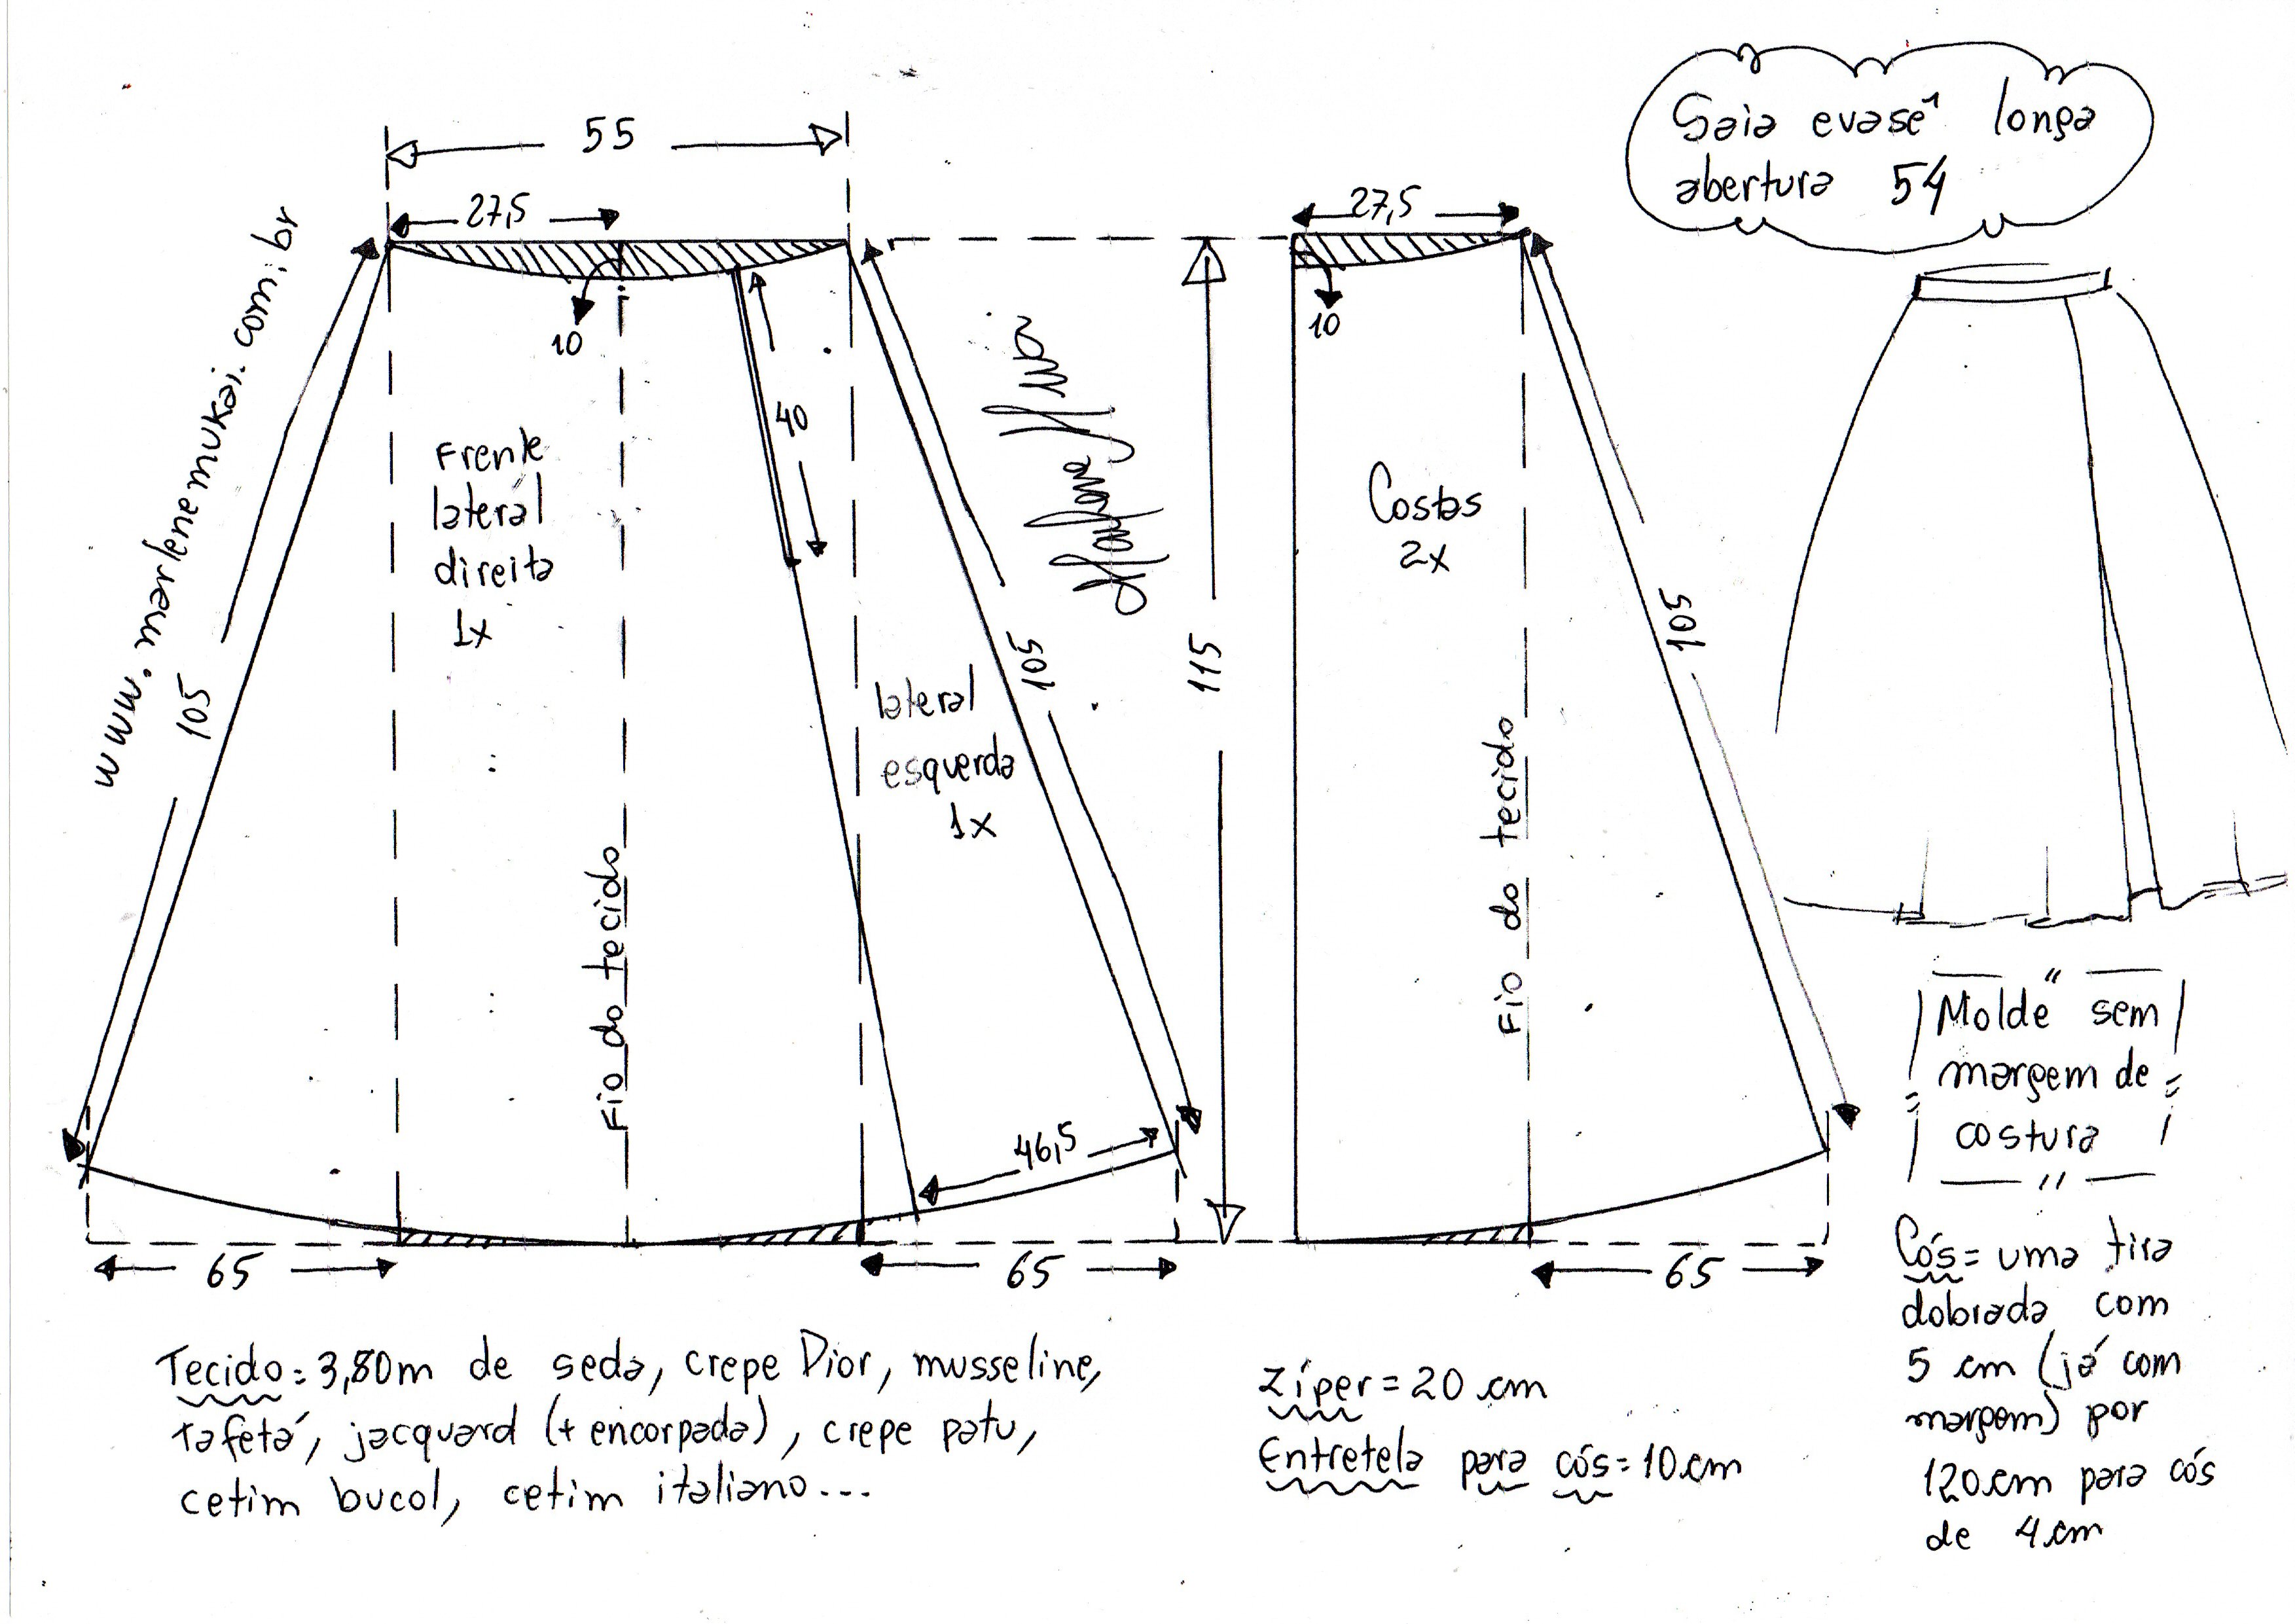 Saia evasê longa
abertura 54
55
27,5
10
40
Frente
lateral
direita
1x
105
www.marlenemukai.com.br
Fio do tecido
lateral
esquerda
1x
105
46,5
65
65
115
27,5
10
Costas
2x
105
Fio do tecido
65
"
Molde sem
margem de
costura
"
Cós = uma tira
dobrada com
5 cm (já com
margem) por
120cm para cós
de 4cm
Tecido = 3,80m de seda, crepe Dior, musseline,
tafetá, jacquard (+ encorpada), crepe patu,
cetim bucol, cetim italiano...
Zíper = 20 cm
Entretela para cós = 10cm